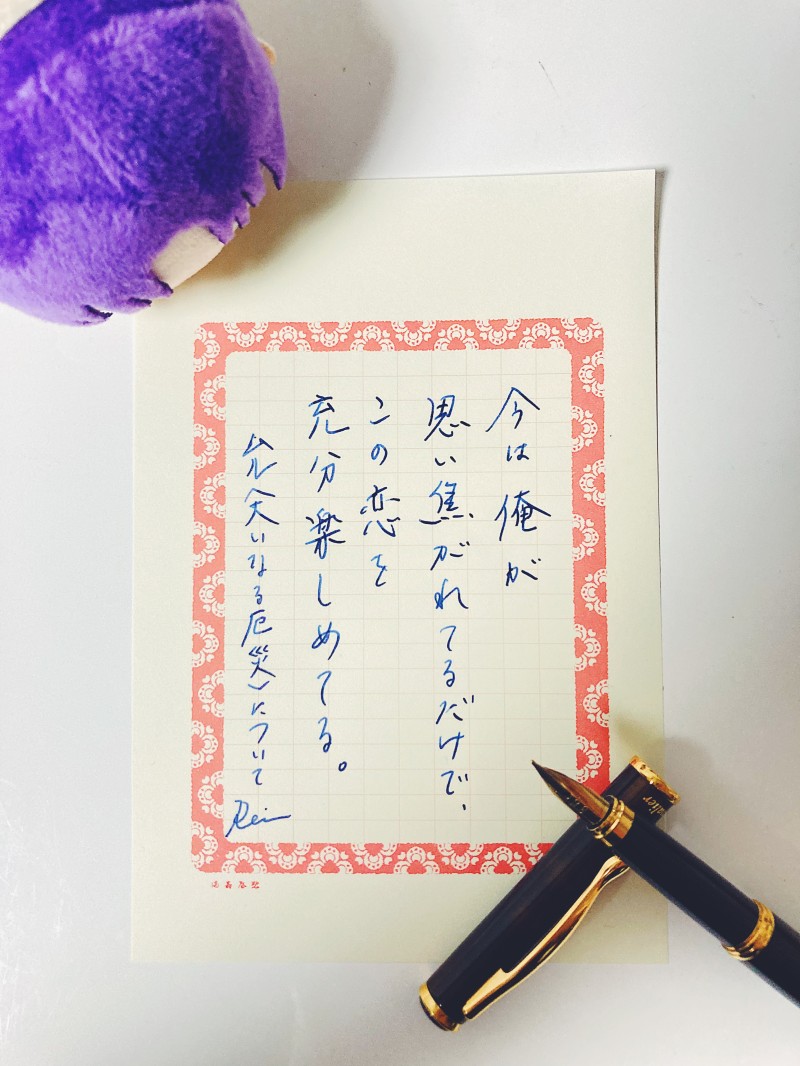 今は俺が
思い焦がれてるだけで、
この恋を
充分楽しめてる。
ムル〈大いなる厄災〉について
Rei